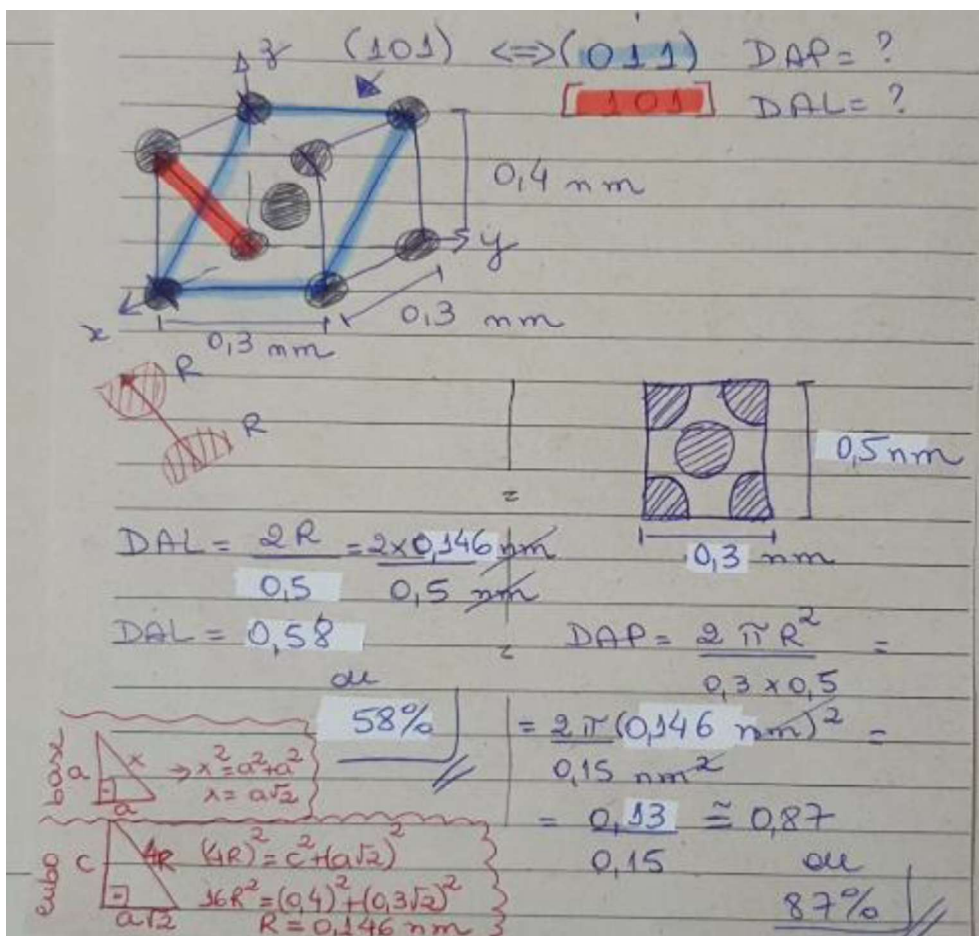 z (101) <=> (011) DAP = ?
[101] DAL = ?
0,4 nm
y
0,3 nm
x
0,3 nm
R
R
0,5 nm
0,3 nm
DAL = 2R / 0,5 = 2×0,146 nm / 0,5 nm
DAL = 0,58
ou
58%
DAP = 2πR² / 0,3 × 0,5 =
= 2π(0,146 nm)² / 0,15 nm² =
= 0,13 / 0,15 ≅ 0,87
ou
87%
base
a x → x² = a² + a²
a x = a√2
cubo
c 4R (4R)² = c² + (a√2)²
16R² = (0,4)² + (0,3√2)²
a√2 R = 0,146 nm